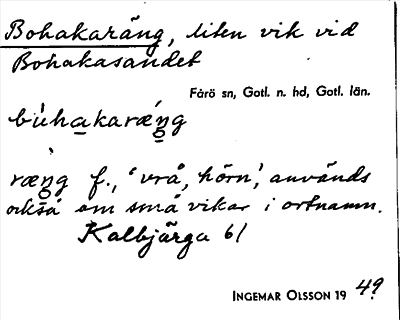 Bohakaräng, liten vik vid
Bohakasandet
Fårö sn, Gotl. n. hd, Gotl. län.
bùhakaræ̂ng
ræng f., 'vrå, hörn', används
också om små vikar i ortnamn.
Kalbjärga 61
INGEMAR OLSSON 19 49